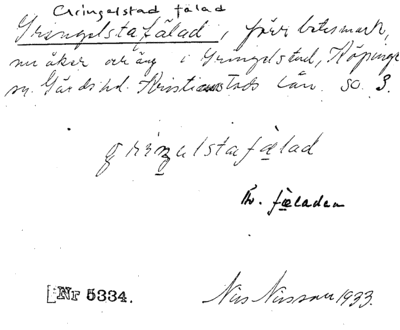 Gringelstad fälad
Gringelstafälad, förr betesmark,
nu åker och äng i Gringelstad, Köpinge
sn. Gärds hd. Kristianstads län. so. 3.
griŋəlstafälad
Tr. fäladen
Nr 5334.
Nils Nilsson 1933.